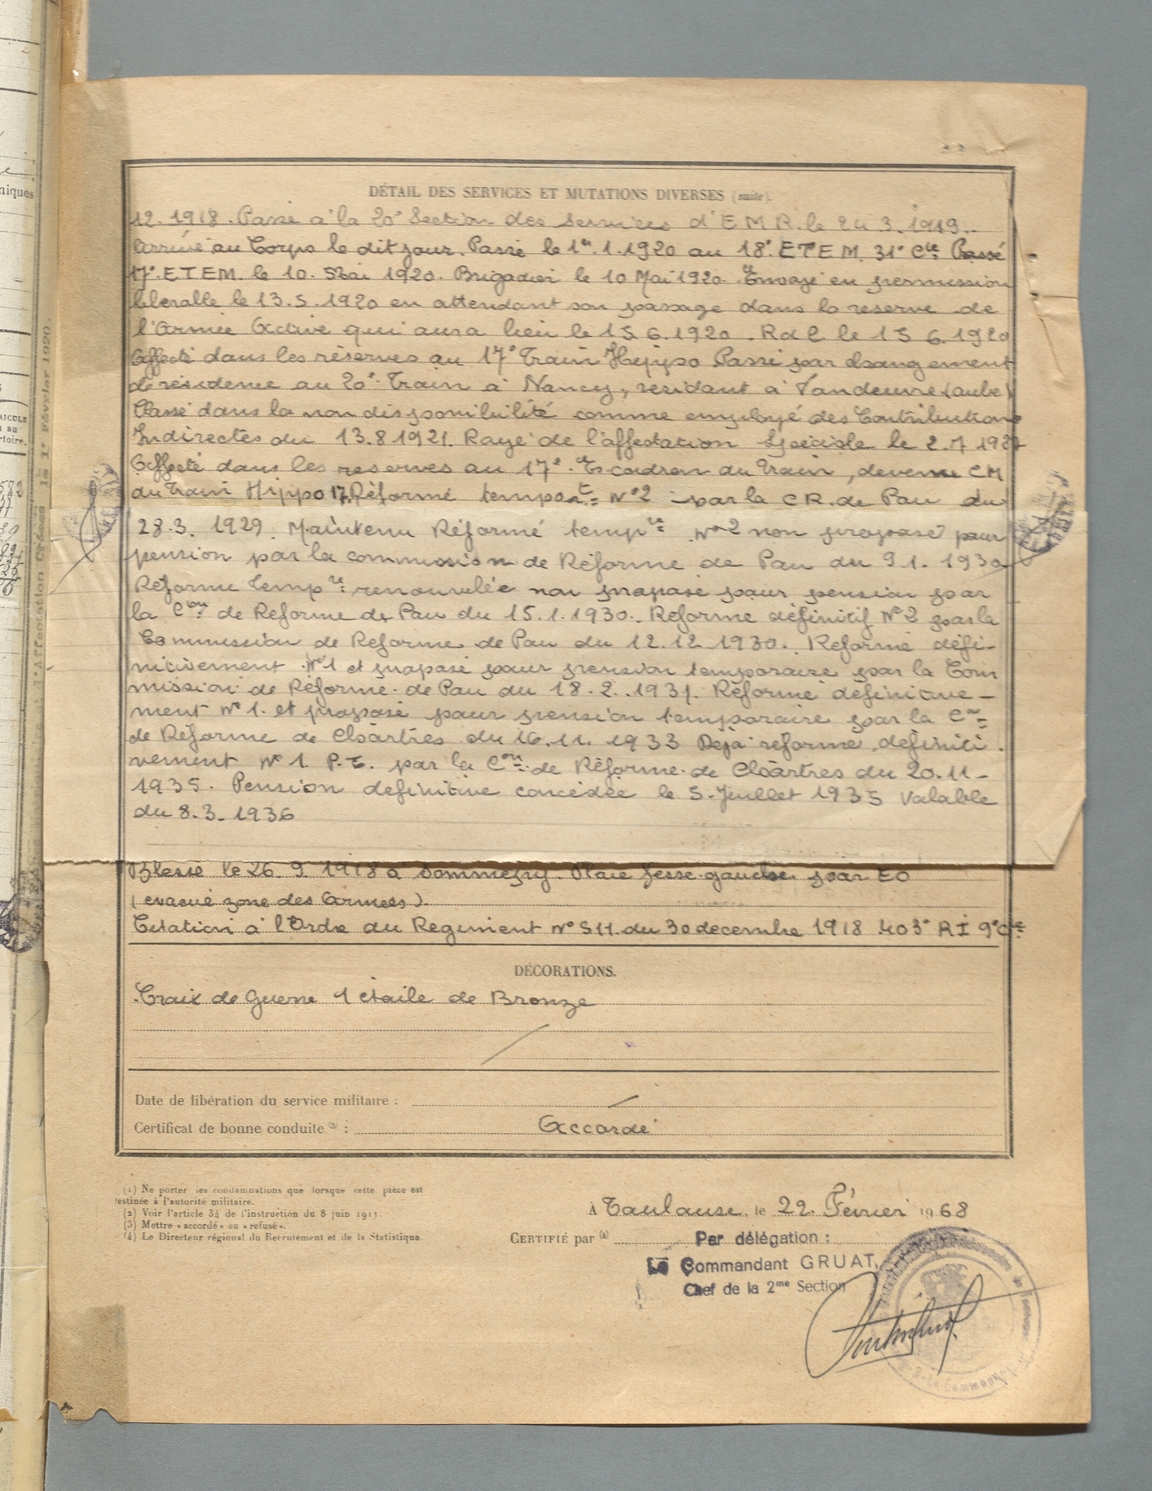 DÉTAIL DES SERVICES ET MUTATIONS DIVERSES (suite).
12.1918. Passé à la 20e Section des Services d'E M R. le 24.3.1919.
Arrivé au Corps le dit jour. Passé le 1er.1.1920 au 18e E T E M. 31e Cie Passé
17e. E T E M. le 10. Mai 1920. Brigadier le 10 Mai 1920. Envoyé en permission
libérable le 13.5.1920 en attendant son passage dans la reserve de
l'Armée Active qui aura lieu le 15.6.1920. RdC le 15 6.1920
Affecté dans les réserves au 17e Train Hyppo Passé par changement
de résidence au 20e Train à Nancy, residant à Vandeuvre (aube)
Classé dans la non disponibilité comme employé des Contributions
Indirectes du 13.8.1921. Rayé de l'affectation Spéciale le 2.7 1927
Affecté dans les reserves au 17e Escadron du Train, devenu C M
du Train Hippo 17, Réformé tempore N°2 par la C R. de Pau du
28.3. 1929. Maintenu Réformé tempre N°2 non proposé pour
pension par la commission de Réforme de Pau du 9.1. 1930
Réforme Tempre renouvelée non proposé pour pension par
la Con de Réforme de Pau du 15.1.1930. Reformé définitif N°2 par la
Commission de Reforme de Pau du 12.12.1930. Réformé défi-
nitivement N°1 et proposé pour pension temporaire par la Com
mission de Réforme de Pau du 18.2.1931. Réformé définitive-
ment N°1. et proposé pour pension temporaire par la Con
de Réforme de Chartres du 16.11. 1933 Déjà réformé définiti
vement N°1 P.T. par la Con de Réforme de Chartres du 20.11-
1935. Pension définitive concédée le 5. Juillet 1935 Valable
du 8.3.1936
Blessé le 26.9.1918 à Sommepy. Plaie fesse gauche par EO
(évacué zone des Armées).
Citation à l'Ordre du Regiment N° 511 du 30 decembre 1918 403e R I 9e Cie
DÉCORATIONS.
Croix de Guerre 1 étoile de Bronze
Date de libération du service militaire :
Certificat de bonne conduite (3) : Accordé
(1) Ne porter les condamnations que lorsque cette pièce est
destinée à l'autorité militaire.
(2) Voir l'article 34 de l'instruction du 8 juin 1917.
(3) Mettre « accordé » ou « refusé ».
(4) Le Directeur régional du Recrutement et de la Statistique.
À Toulouse, le 22. Février 1968
CERTIFIÉ par (4)
Par délégation :
Le Commandant GRUAT,
Chef de la 2me Section